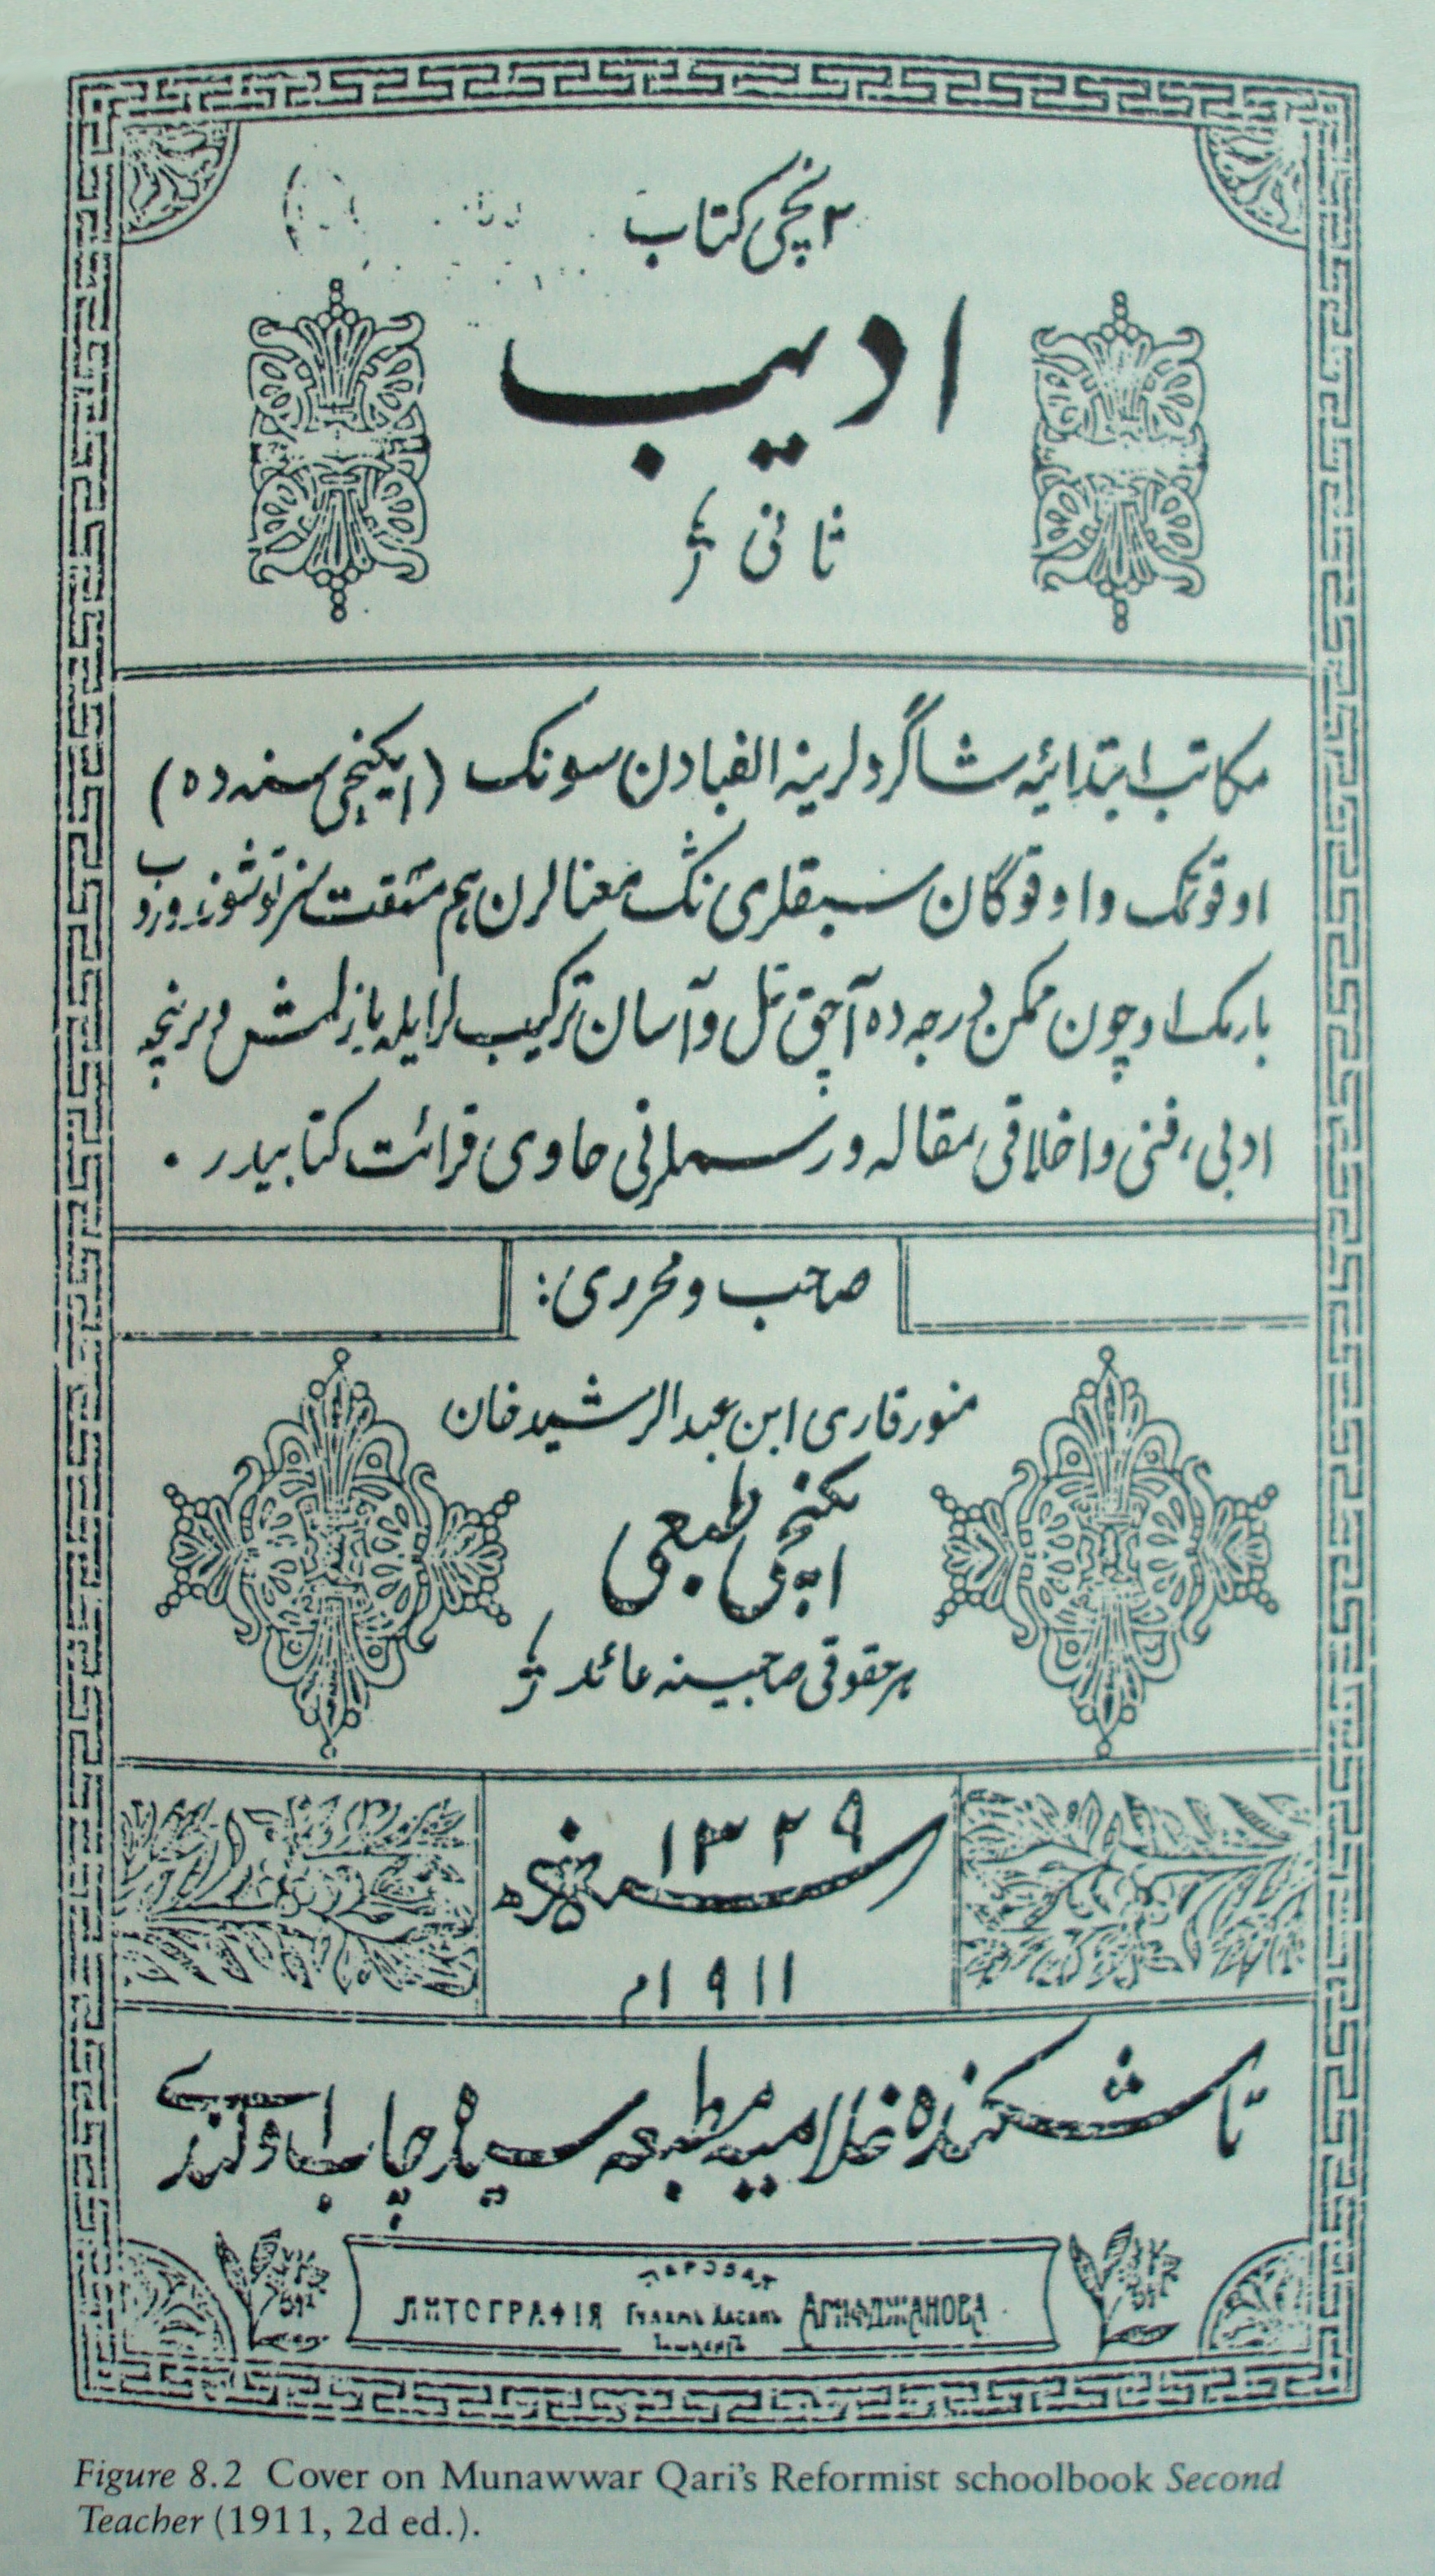 ۲ نچی کتاب
ادیب
ثانی
مکاتب ابتدائیه شاگردلرینه الفبادن سونک (ایکنچی سنه ده)
اوقوتمک و اوقوگان سبقلری نڭ معنالرن هم مشقت سز توشوندوروب
بارمک اوچون ممکن درجه ده آچق تل و آسان ترکیب لر ایله یازلمش و برنچه
ادبی، فنی و اخلاقی مقاله و رسملرنی حاوی قرائت کتابیدر.
صاحب و محرری:
منور قاری ابن عبدالرشید خان
ایکنچی طبعی
هر حقوقی صاحبینه عائد
سنه ۱۳۲۹
۱۹۱۱م
تاشکندده غلامیه مطبعه سیده چاپ اولندی
ЛИТОГРАФІЯ Гуламъ Хасанъ АРИФДЖАНОВА
Ташкентъ
Figure 8.2 Cover on Munawwar Qari's Reformist schoolbook Second
Teacher (1911, 2d ed.).